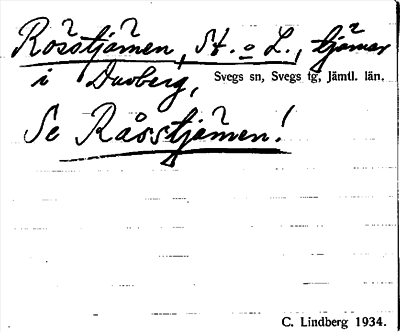 Rosstjärnen, St. o L., tjärnar
i Duvberg, Svegs sn, Svegs tg, Jämtl. län.
Se Råsstjärnen!
C. Lindberg 1934.